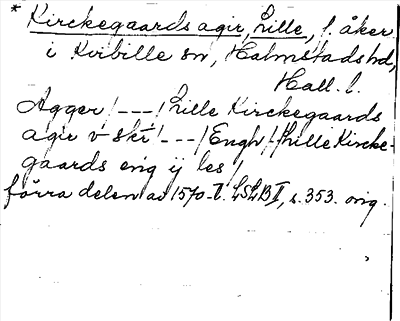 * Kirckegaards agir, Lille, f. åker
i Kvibille sn, Halmstads hd,
Hall. l.
Agger /---/ Lille Kirckegaards
agir v skr /---/ Engh /./ Lille Kircke-
gaards eng ij les /
förra delen av 1570-t. LSLB II, s. 353. orig.